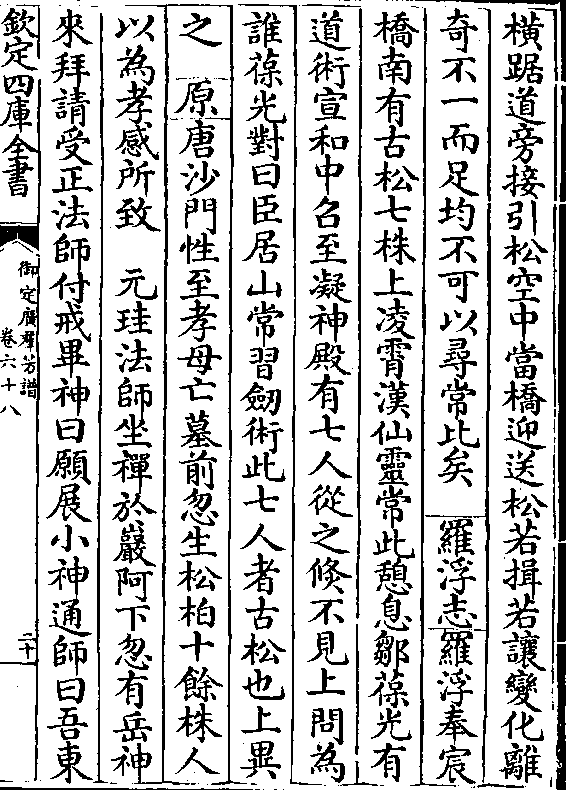 橫踞道旁接引松空中當橋迎送松若揖若讓變化離
奇不一而足均不可以尋常比矣 羅浮志羅浮奉宸
橋南有古松七株上凌霄漢仙靈常此憩息鄒葆光有
道術宣和中召至凝神殿有七人從之倐不見上問為
誰葆光對曰臣居山常習劒術此七人者古松也上異
之 原唐沙門性至孝母亡墓前忽生松柏十餘株人
以為孝感所致 元珪法師坐禪於巖阿下忽有岳神
來拜請受正法師付戒畢神曰願展小神通師曰吾東
欽定四庫全書
御定廣羣芳譜
卷六十八
二十